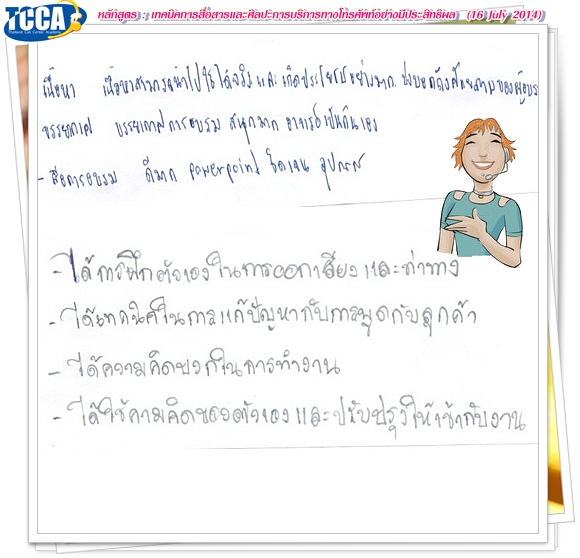 TCCA
Thailand Call Center Academy
หลักสูตร : เทคนิคการสื่อสารและศิลปะการบริการทางโทรศัพท์อย่างมีประสิทธิผล (16 July 2014)
เนื้อหา เนื้อหาสามารถนำไปใช้ได้จริง และเกิดประโยชน์อย่างมาก บ่งบอกถึงศักยภาพของผู้อบร
บรรยากาศ บรรยากาศการอบรม สนุกมาก อาจารย์เป็นกันเอง
- สื่อการอบรม ดีมาก powerpoint ชัดเจน อุปกรณ์
- ได้การฝึกตัวเองในการออกเสียงและท่าทาง
- ได้เทคนิคในการแก้ปัญหากับการพูดกับลูกค้า
- ได้ความคิดบวกในการทำงาน
- ได้ใช้ความคิดของตัวเองและปรับปรุงให้เข้ากับงาน